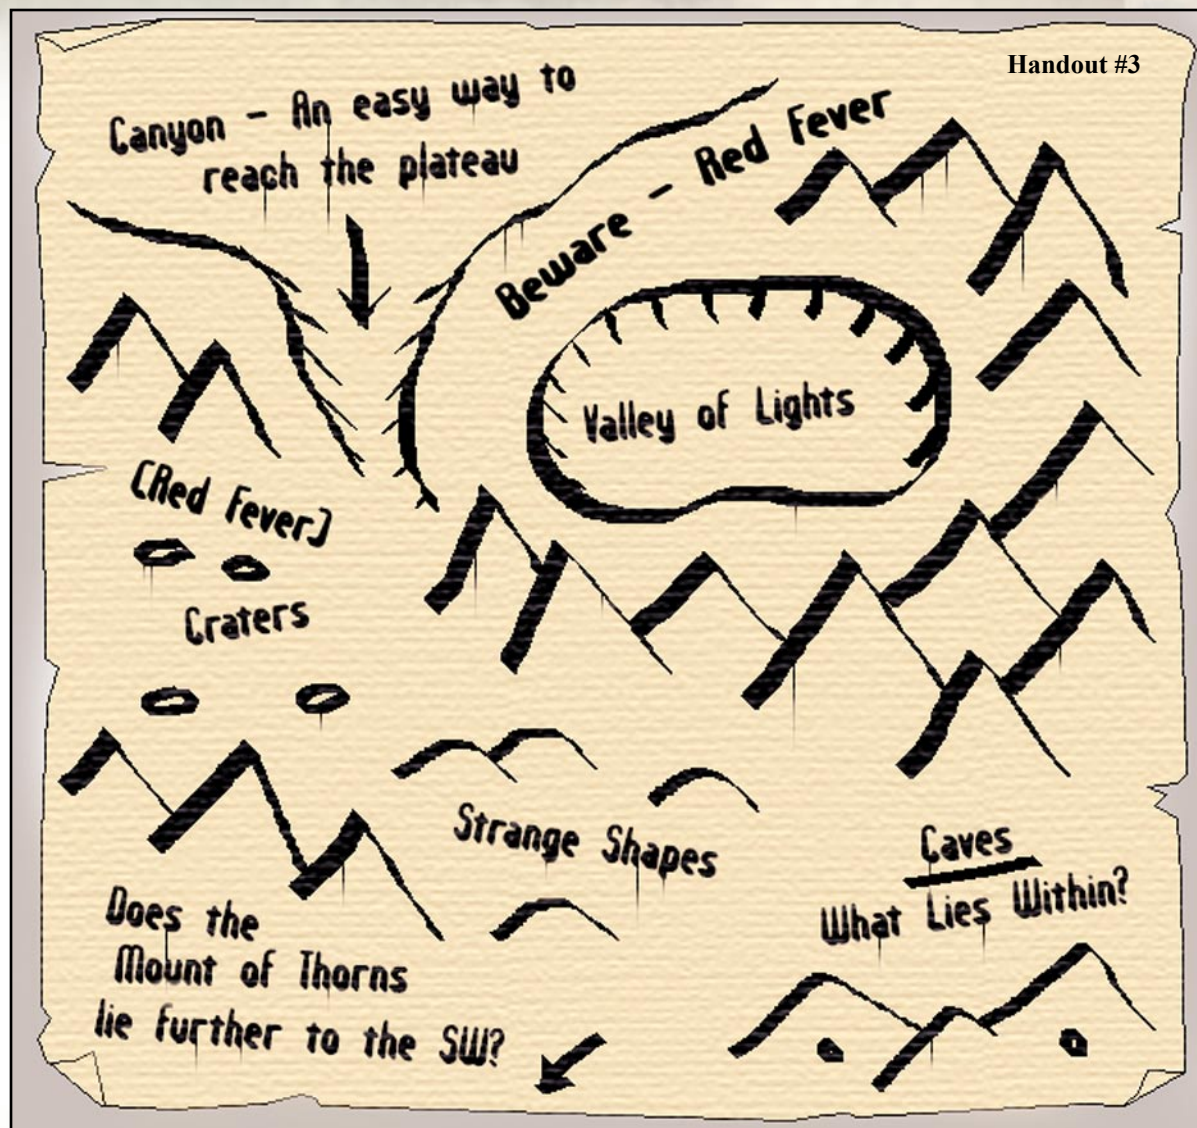 Handout #3
Canyon - An easy way to
reach the plateau
Beware - Red Fever
Valley of Lights
(Red Fever)
Craters
Strange Shapes
Caves
What Lies Within?
Does the
Mount of Thorns
lie further to the SW?